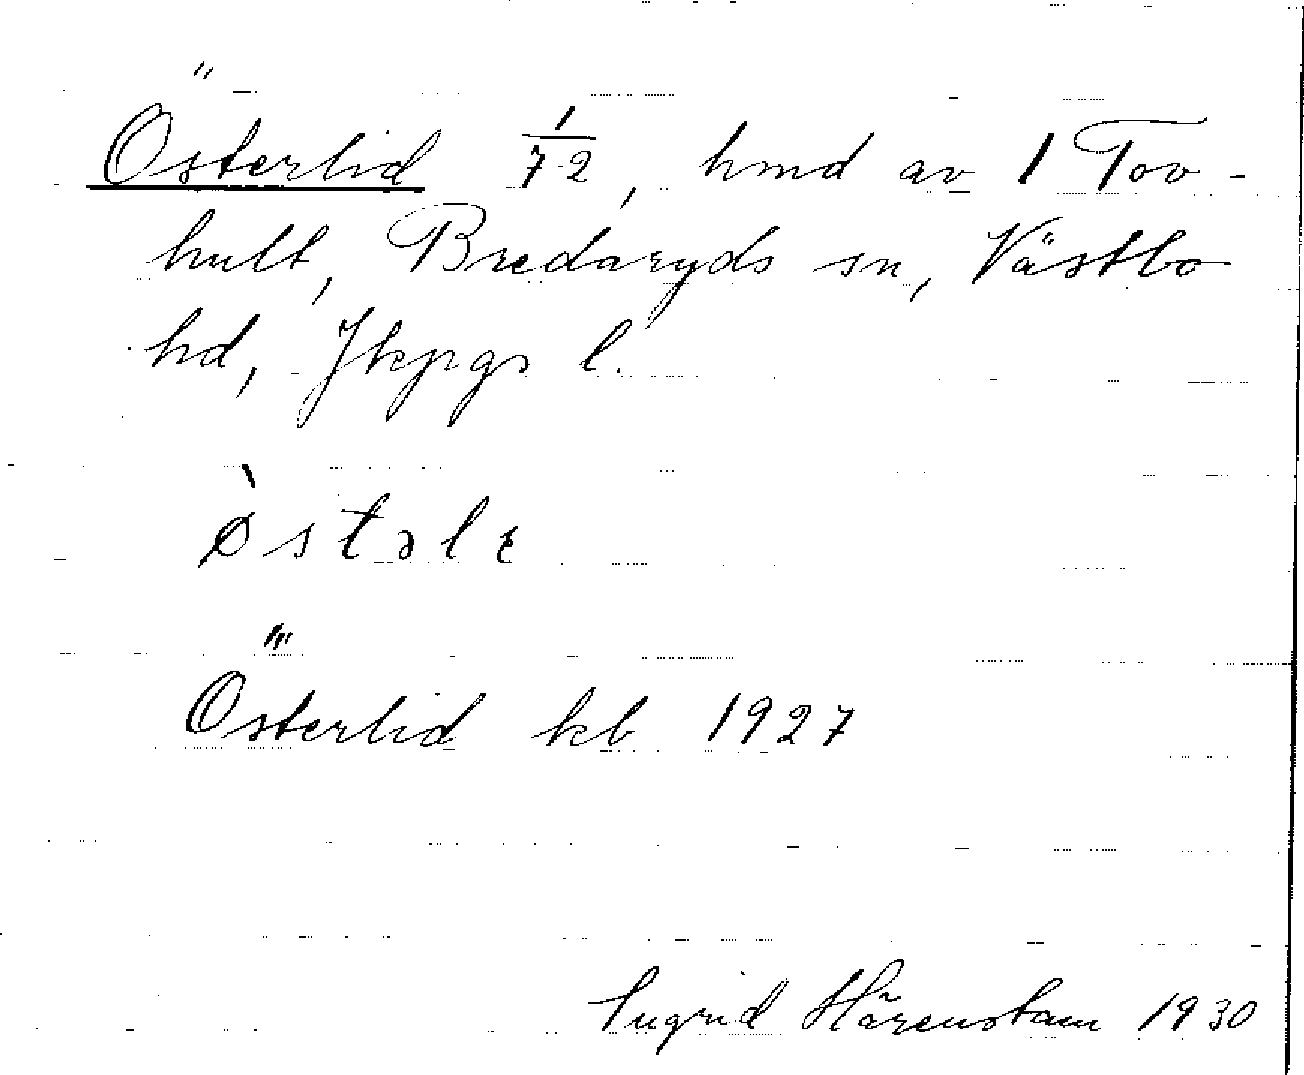 Österlid 1/72, hmd av 1 Tov-
hult, Bredaryds sn, Västbo
hd, Jkpgs l.
ø̀stəlɛ
Österlid kb 1927
Ingrid Härenstam 1930